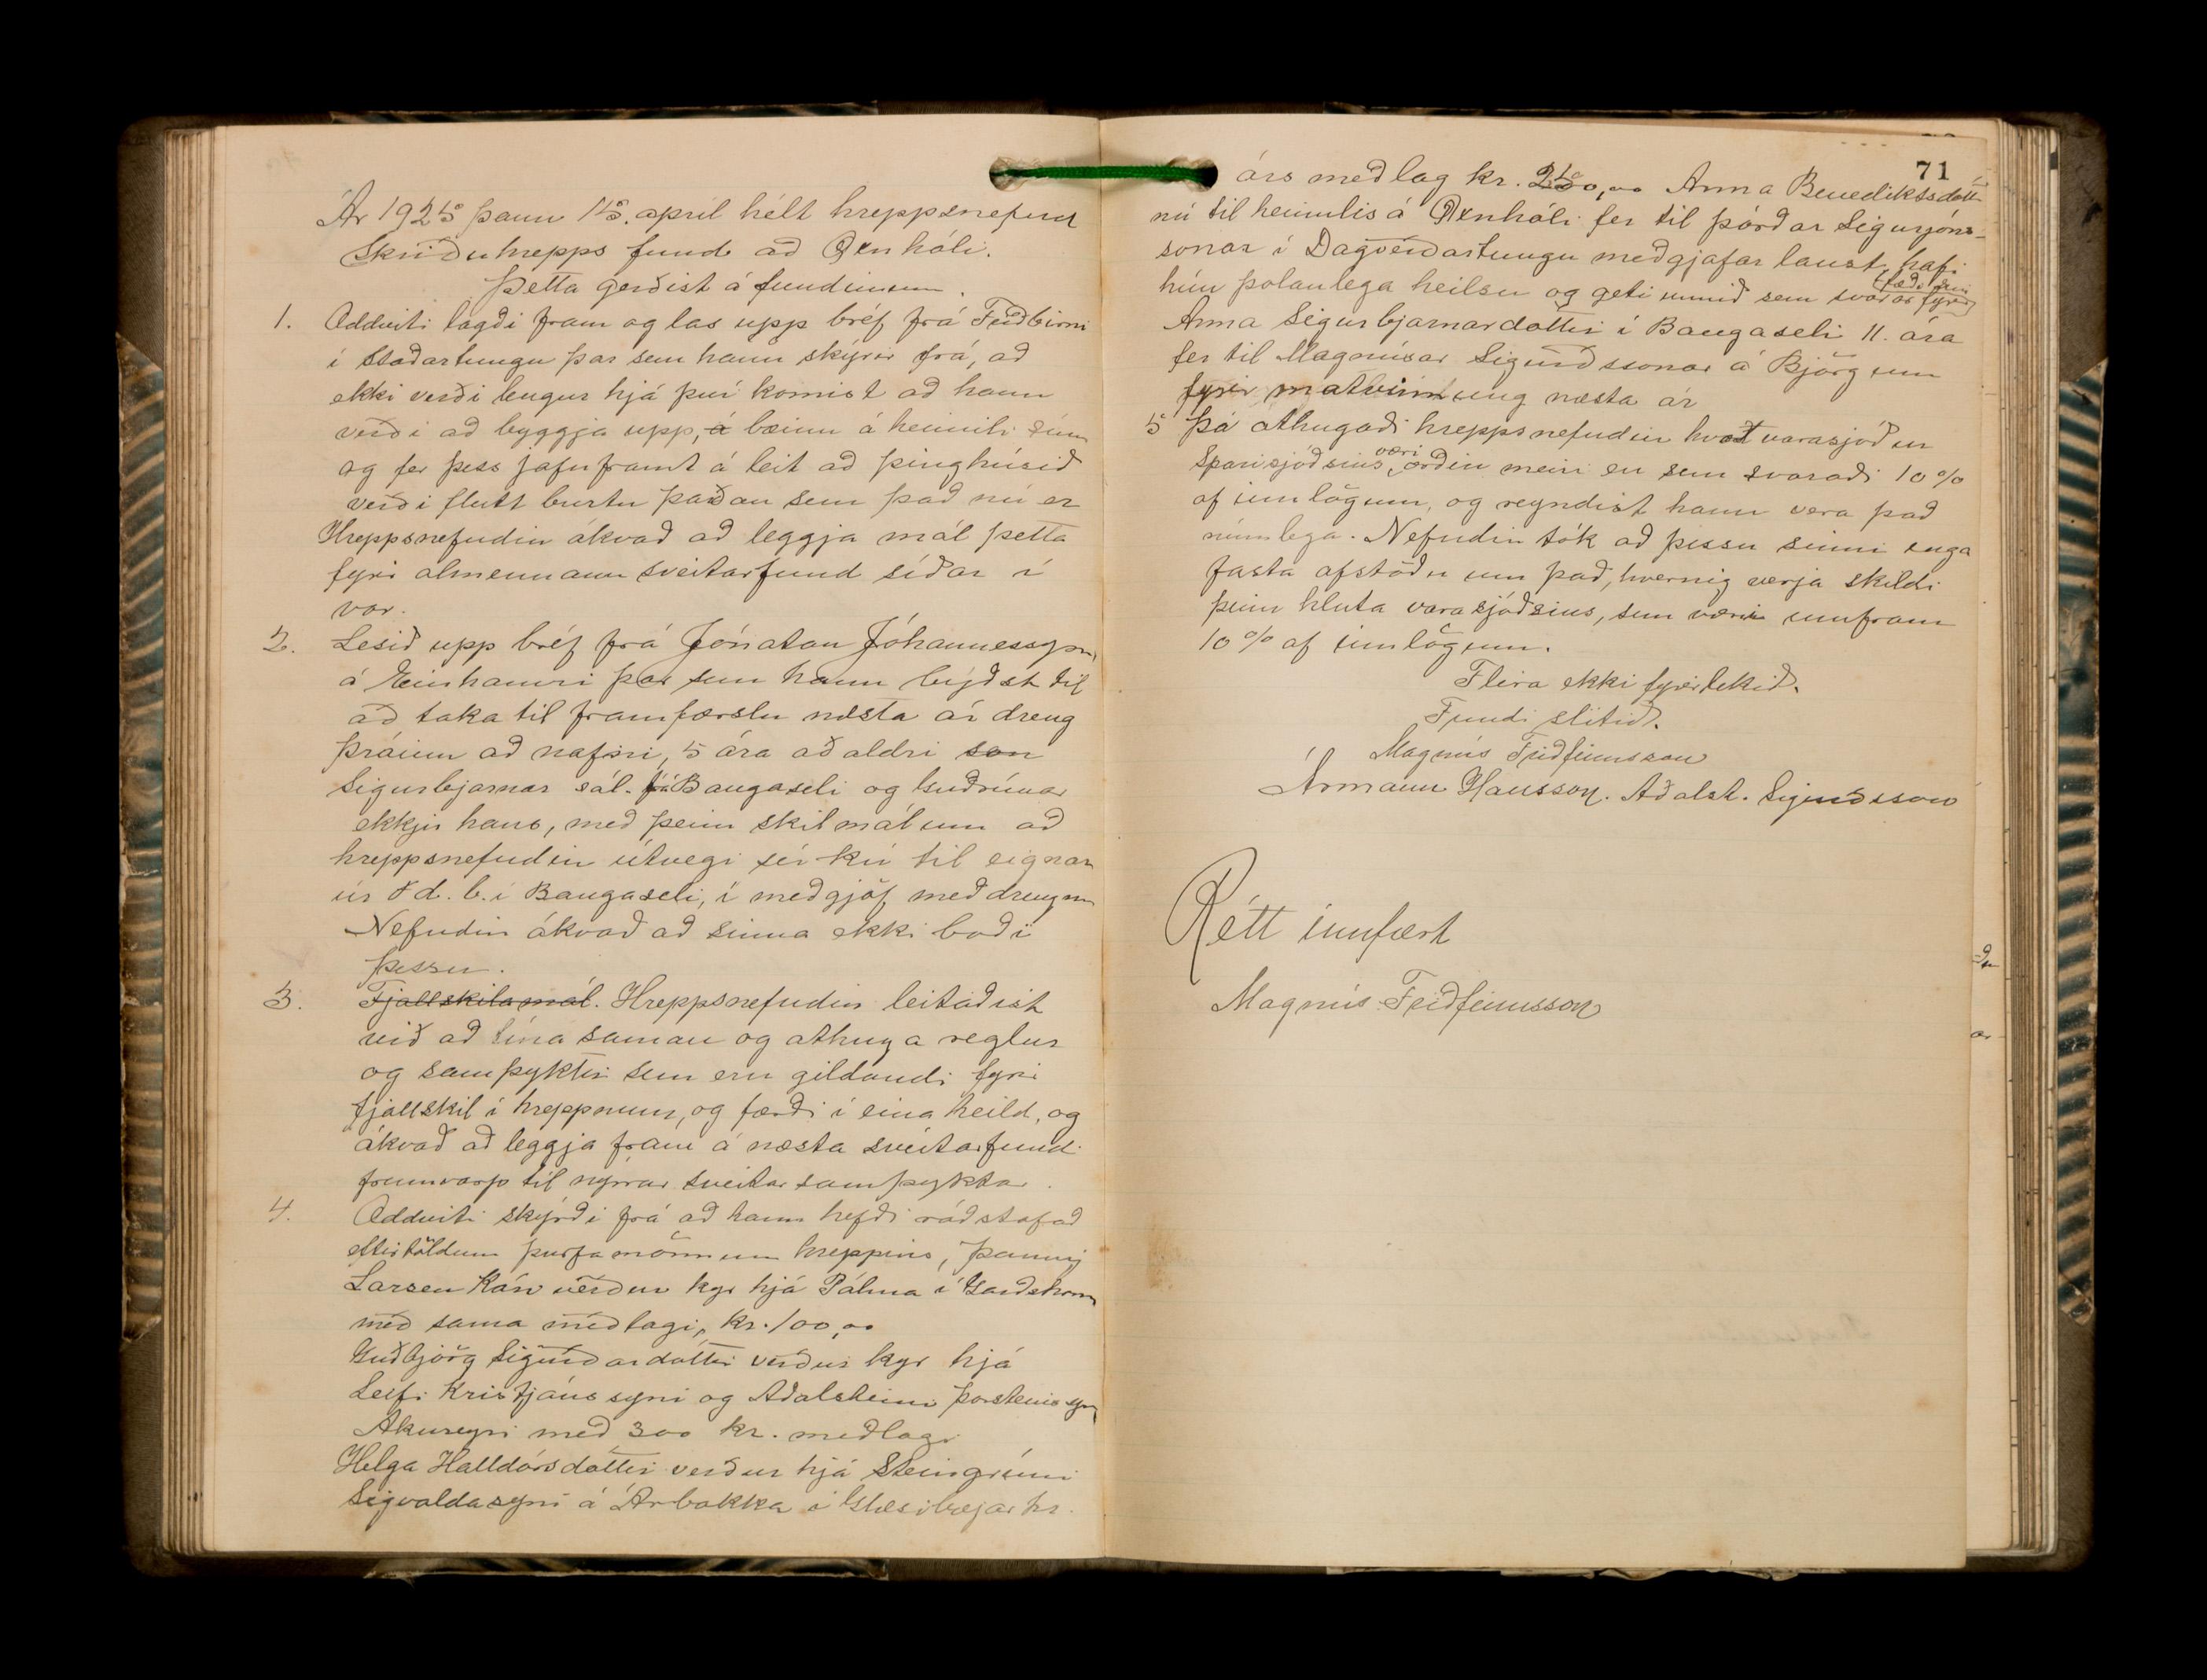 Ár 1925 þann 15. apríl hélt hreppsnefnd
Skriðuhrepps fund að Öxnhóli.
Þetta gerðist á fundinum.
1. Oddviti lagði fram og las upp bréf frá Friðbirni
í Staðartungu þar sem hann skýrir frá, að
ekki verði lengur hjá því komist að hann
verði að byggja upp, á bæinn á heimili sínu
og fer þess jafnframt á leit að þinghúsið
verði flutt burtu þaðan sem það nú er
Hreppsnefndin ákvað að leggja mál þetta
fyrir almennann sveitarfund síðar í
vor.
2. Lesið upp bréf frá Jónatan Jóhannessyni
á Einhamri þar sem hann býðst til
að taka til framfærslu næsta ár dreng
Þráinn að nafni, 5 ára að aldri son
Sigurbjarnar sál. frá Baugaseli og Guðrúnar
ekkju hans, með þeim skilmálum að
hreppsnefndin útvegi sér kú til eignar
úr d. b. í Baugaseli, í meðgjöf með drengnum
Nefndin ákvað að sinna ekki boði
þessu.
3. Fjallskilamál. Hreppsnefndin leitaðist
við að tína saman og athuga reglur
og samþyktir sem eru gildandi fyri
fjallskil í hreppnum, og færði í eina heild, og
ákvað að leggja fram á næsta sveitarfundi
frumvarp til nýrrar sveitarsamþyktar.
4. Oddviti skýrði frá að hann hefði ráðstafað
eftirtöldum þurfamönnum hreppins, þannig
Larsen Kári verður kyr hjá Pálma í Garðshorni
með sama meðlagi, kr. 100,00
Guðbjörg Sigurðardóttir verður kyr hjá
Leifi Kristjánssyni og Aðalsteini Þorsteinssyni
Akureyri með 300 kr. meðlagi
Helga Halldórsdóttir verður hjá Steingrími
Sigvaldasyni á Árbakka í Glæsibæjarhr.
71
árs meðlag kr. Anna Benediktsdóttir
nú til heimilis á Öxnhóli fer til Þórðar Sigurjóns-
sonar í Dagverðartungu meðgjafar laust, hafi
hún þolanlega heilsu og geti unnið sem svarar fyrir
fæði sínu
Anna Sigurbjarnardóttir í Baugaseli 11. ára
fer til Magnúsar Sigurðssonar á Björgum
fyrir matvinnung næsta ár
5 Þá athugaði hreppsnefndin hvað varasjóður
Sparisjóðsins væri orðin meiri en sem svaraði 10%
af innlögum, og reyndist hann vera það
nímlega. Nefndin tók að þessu sinni enga
fasta afstöðu um það, hvernig verja skildi
þeim hluta varasjóðsins, sem væri umfram
10% af innlögum.
Fleira ekki fyrirtekið.
Fundi slitið.
Magnús Friðfinnsson
Ármann Hansson. Aðalst. Sigurðsson
Rétt innfært
Magnús Friðfinnsson